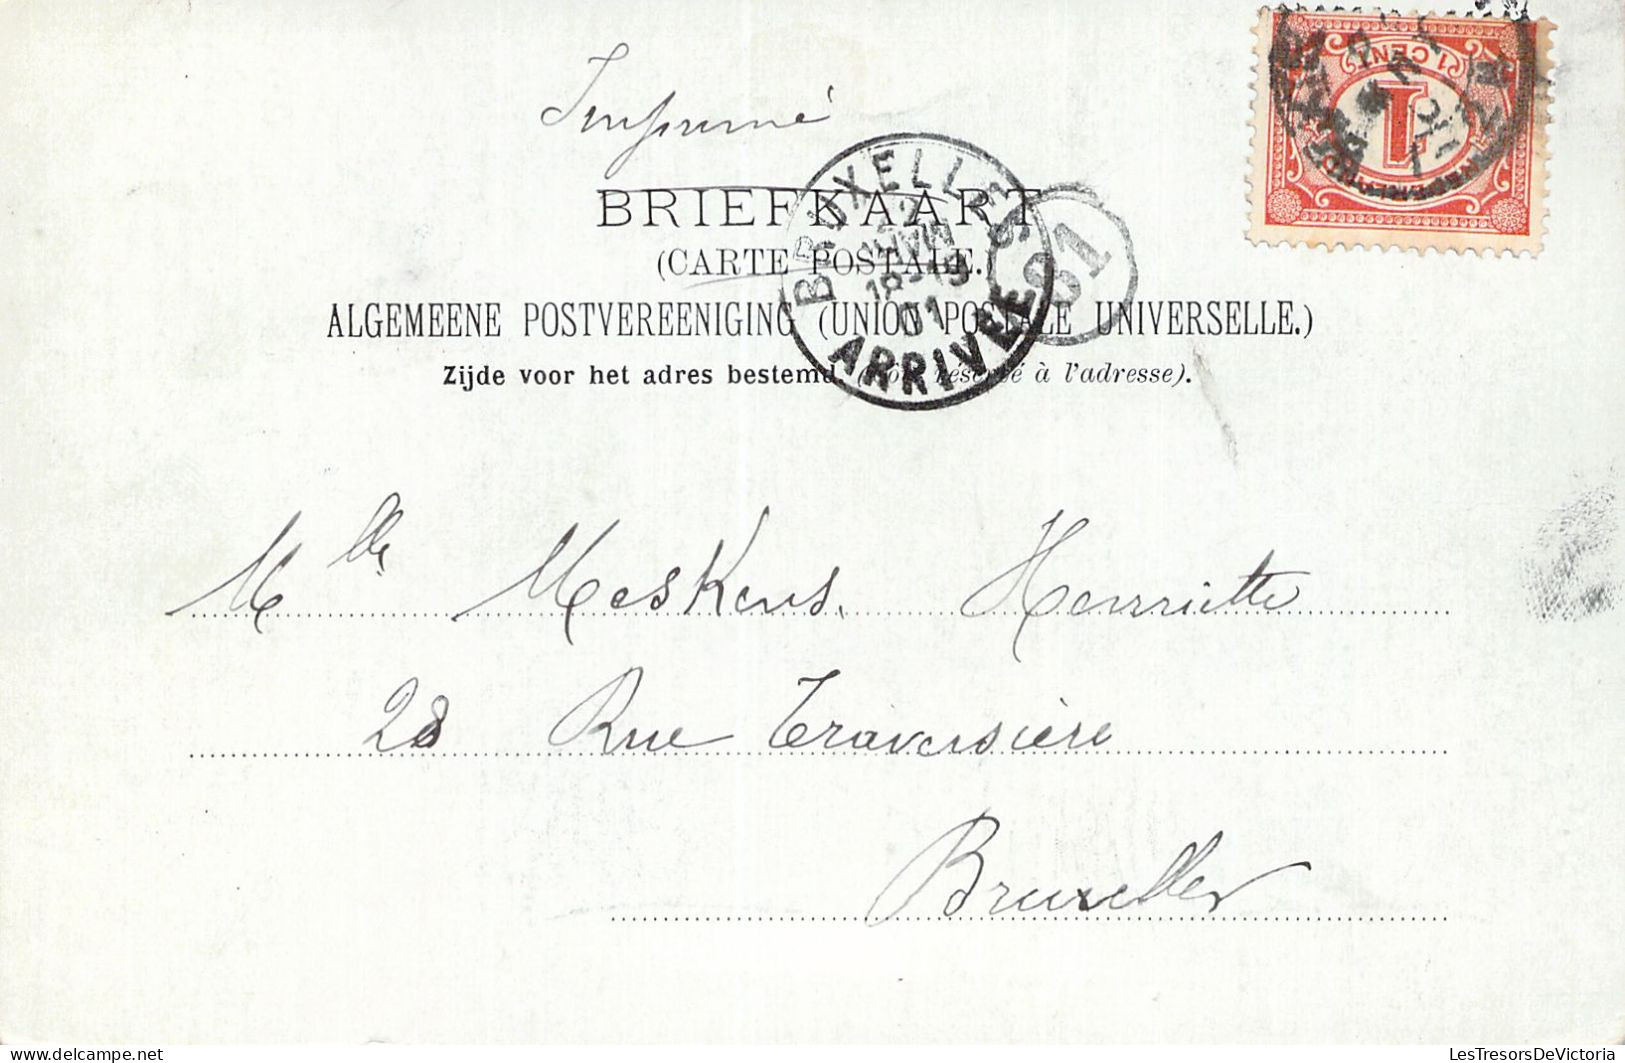 Imprimé
1 CENT
1
BRIEFKAART
(CARTE POSTALE.)
ALGEMEENE POSTVEREENIGING (UNION POSTALE UNIVERSELLE.)
Zijde voor het adres bestemd. (Côté réservé à l'adresse).
BRUXELLES
18-19
01
ARRIVEE
61
Mlle Meskens. Henriette
28 Rue Traversière
Bruxelles
LesTresorsDeVictoria
LesTresorsDeVictoria